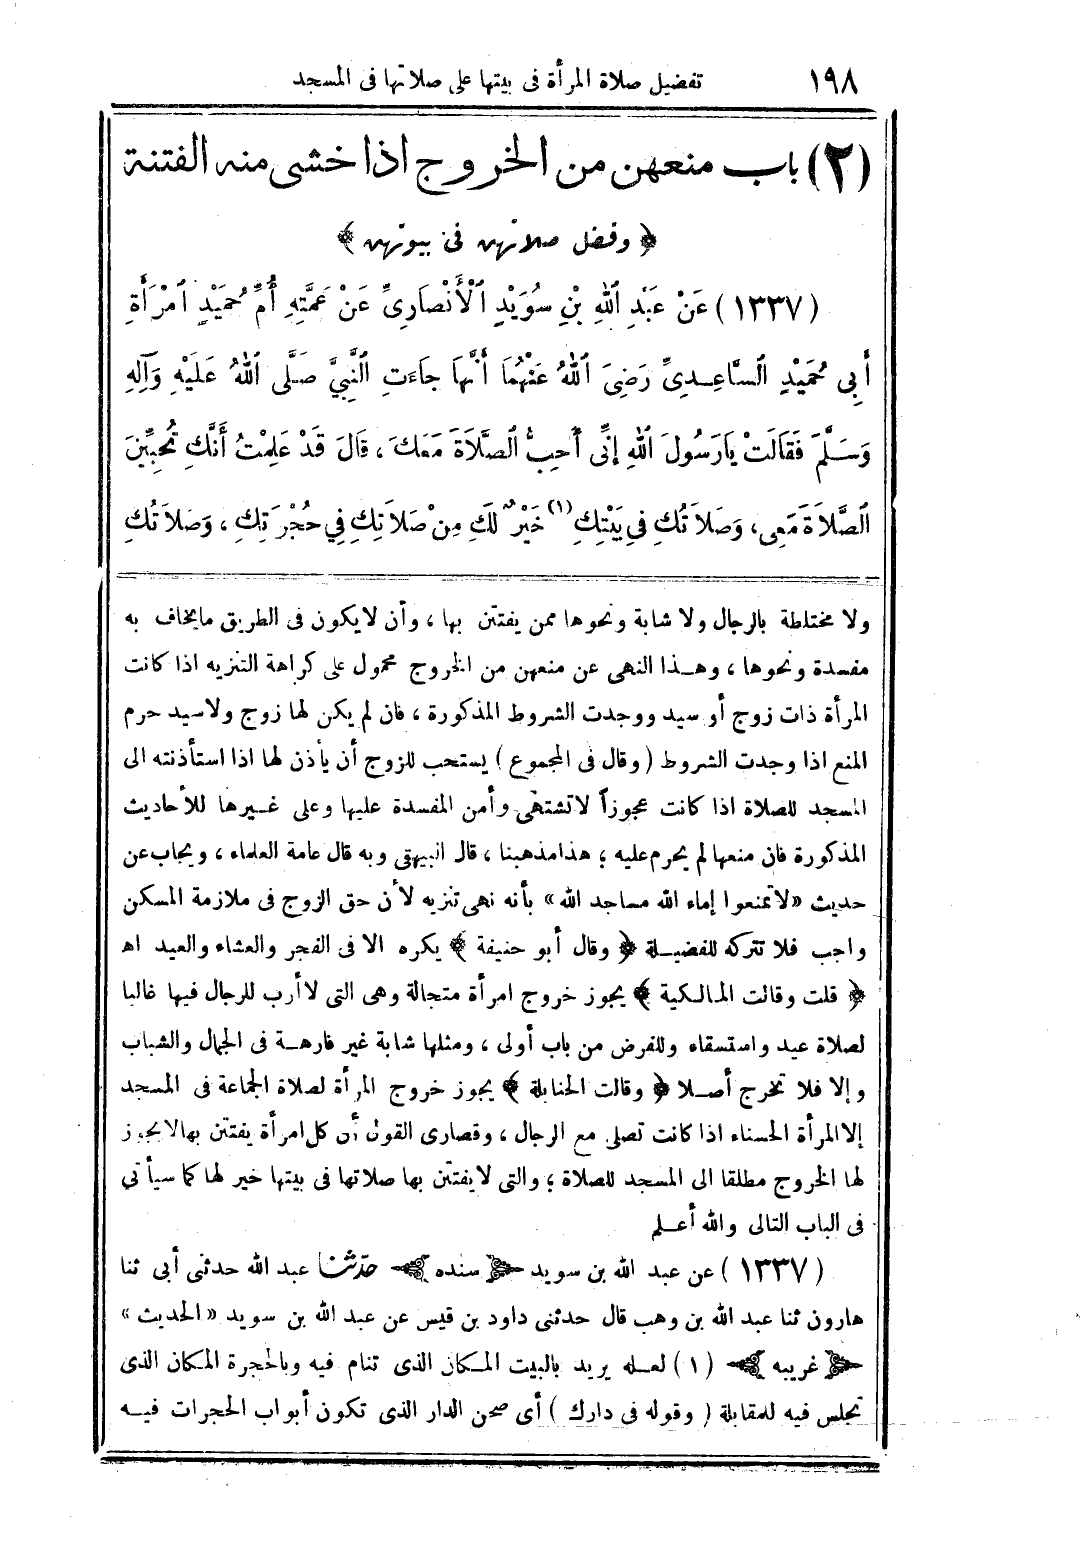 ١٩٨ تفضيل صلاة المرأة فى بيتها على صلاتها فى المسجد
(٢) باب منعهن من الخروج اذا خشى منه الفتنة
﴿ وفضل صلاتهن فى بيوتهن ﴾
(١٣٣٧) عَنْ عَبْدِ اللهِ بْنِ سُوَيْدٍ الْأَنْصَارِىِّ عَنْ عَمَّتِهِ أُمِّ حُمَيْدٍ امْرَأَةِ
أَبِى حُمَيْدٍ السَّاعِدِىِّ رَضِىَ اللهُ عَنْهُمَا أَنَّهَا جَاءَتِ النَّبِيَّ صَلَّى اللهُ عَلَيْهِ وَآلِهِ
وَسَلَّمَ فَقَالَتْ يَارَسُولَ اللهِ إِنِّى أُحِبُّ الصَّلاَةَ مَعَكَ ، قَالَ قَدْ عَلِمْتُ أَنَّكِ تُحِبِّينَ
الصَّلاَةَ مَعِى، وَصَلاَتُكِ فِى بَيْتِكِ (١) خَيْرٌ لَكِ مِنْ صَلاَتِكِ فِي حُجْرَتِكِ ، وَصَلاَتُكِ
ولا مختلطة بالرجال ولا شابة ونحوها ممن يفتتن بها ، وأن لايكون فى الطريق مايخاف به
مفسدة ونحوها ، وهذا النهى عن منعهن من الخروج محمول على كراهة التنزيه اذا كانت
المرأة ذات زوج أو سيد ووجدت الشروط المذكورة ، فان لم يكن لها زوج ولاسيد حرم
المنع اذا وجدت الشروط (وقال فى المجموع) يستحب للزوج أن يأذن لها اذا استأذنته الى
المسجد للصلاة اذا كانت عجوزاً لاتشتهى وأمن المفسدة عليها وعلى غيرها للأحاديث
المذكورة فان منعها لم يحرم عليه ؛ هذا مذهبنا ، قال البيهقى وبه قال عامة العلماء ، ويجاب عن
حديث «لا تمنعوا إماء الله مساجد الله» بأنه نهى تنزيه لأن حق الزوج فى ملازمة المسكن
واجب فلا تتركه للفضيلة ﴿ وقال أبو حنيفة ﴾ يكره الا فى الفجر والعشاء والعيد اه
﴿ قلت وقالت المالكية ﴾ يجوز خروج امرأة متجالة وهى التى لاأرب للرجال فيها غالبا
لصلاة عيد واستسقاء وللفرض من باب أولى ، ومثلها شابة غير فارهة فى الجمال والشباب
وإلا فلا تخرج أصلا ﴿ وقالت الحنابلة ﴾ يجوز خروج المرأة لصلاة الجماعة فى المسجد
إلاالمرأة الحسناء اذا كانت تصلى مع الرجال ، وقصارى القول أن كل امرأة يفتتن بها لايجوز
لها الخروج مطلقا الى المسجد للصلاة ؛ والتى لايفتتن بها صلاتها فى بيتها خير لها كما سيأتى
فى الباب التالى والله أعلم
(١٣٣٧) عن عبد الله بن سويد ﴿ سنده ﴾ حدّثنا عبد الله حدثنى أبى ثنا
هارون ثنا عبد الله بن وهب قال حدثنى داود بن قيس عن عبد الله بن سويد «الحديث»
﴿ غريبه ﴾ (١) لعله يريد بالبيت المكان الذى تنام فيه وبالحجرة المكان الذى
تجلس فيه للمقابلة (وقوله فى دارك) أى صحن الدار الذى تكون أبواب الحجرات فيه